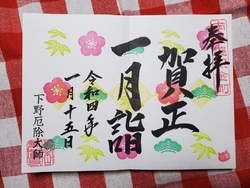 奉拝
賀正
一月詣
令和四年
一月十五日
下野厄除大師